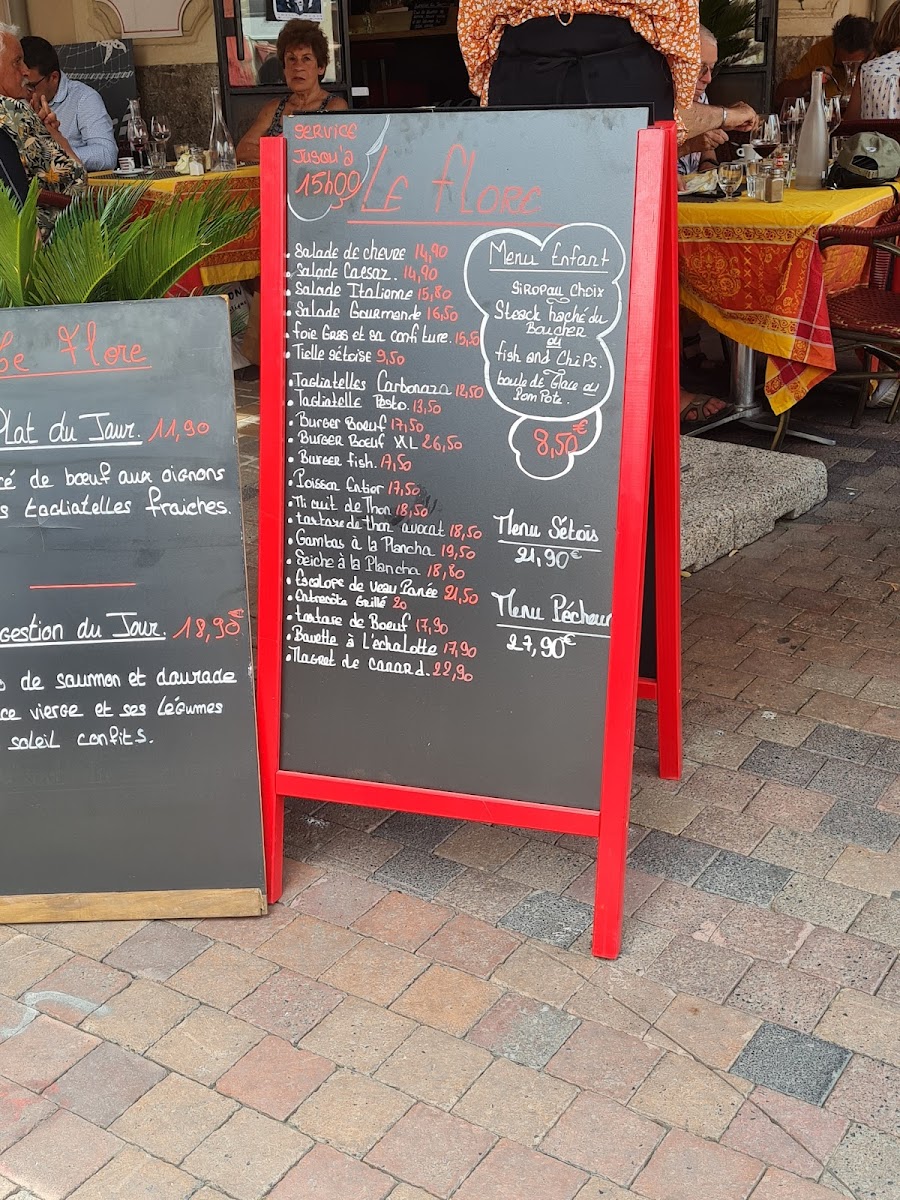 Le Flore
Plat du Jour. 11,90
de bœuf aux oignons
tagliatelles fraiches.
gestion du Jour. 18,90€
de saumon et daurade
vierge et ses légumes
soleil confits.
SERVICE
JUSQU'à
15h00
LE FLORE
Salade de chevre 14,90
Salade Caesar. 14,90
Salade Italienne 15,80
Salade Gourmande 16,50
Foie Gras et sa confiture. 15,50
Tielle sétoise 9,50
Tagliatelles Carbonara 12,50
Tagliatelle Pesto. 13,50
Burger Boeuf 17,50
Burger Boeuf XL 26,50
Burger fish. 17,50
Poisson Entier 17,50
Mi cuit de Thon 18,50
tartare de thon avocat 18,50
Gambas à la Plancha 19,50
Seiche à la Plancha 18,80
Escalope de veau Panée 21,50
Entrecôte Grillé 20
tartare de Boeuf 17,90
Bavette à l'échalotte 17,90
Magret de canard. 22,90
Menu Enfant
SIROP au CHOIX
Steack haché du
Boucher
ou
fish and Chips.
boule de Glace ou
Pom Pote.
8,50€
Menu Sétois
21,90€
Menu Pécheur
27,90€